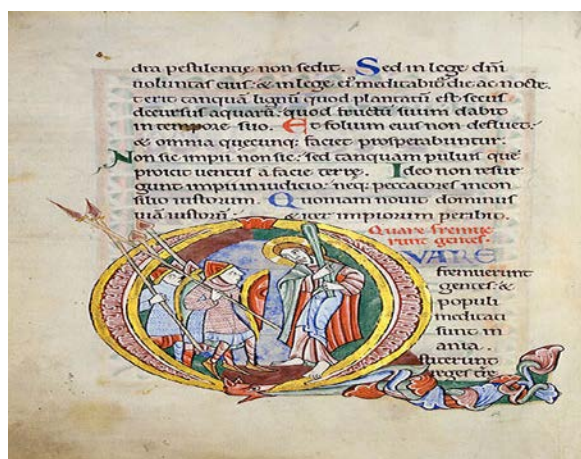 dra pestilentie non sedit. Sed in lege dñi
uoluntas eius: & in lege ei' meditabit' die ac nocte.
& erit tanquā lignū quod plantatū est secus
decursus aquarū: quod fructū suum dabit
in tempore suo. Et folium eius non defluet:
& omnia quecunq; faciet prosperabuntur.
Non sic impii non sic: sed tanquam puluis quē
proicit uentus a facie terre. Ideo non resur
gunt impii in iudicio: neq; peccatores in con
silio iustorum. Quoniam nouit dominus
uiā iustorū: & iter impiorum peribit.
Quare fremue
runt gentes.
VARE
fremuerunt
gentes: &
populi
meditati
sunt in
ania.
stiterunt
reges tre